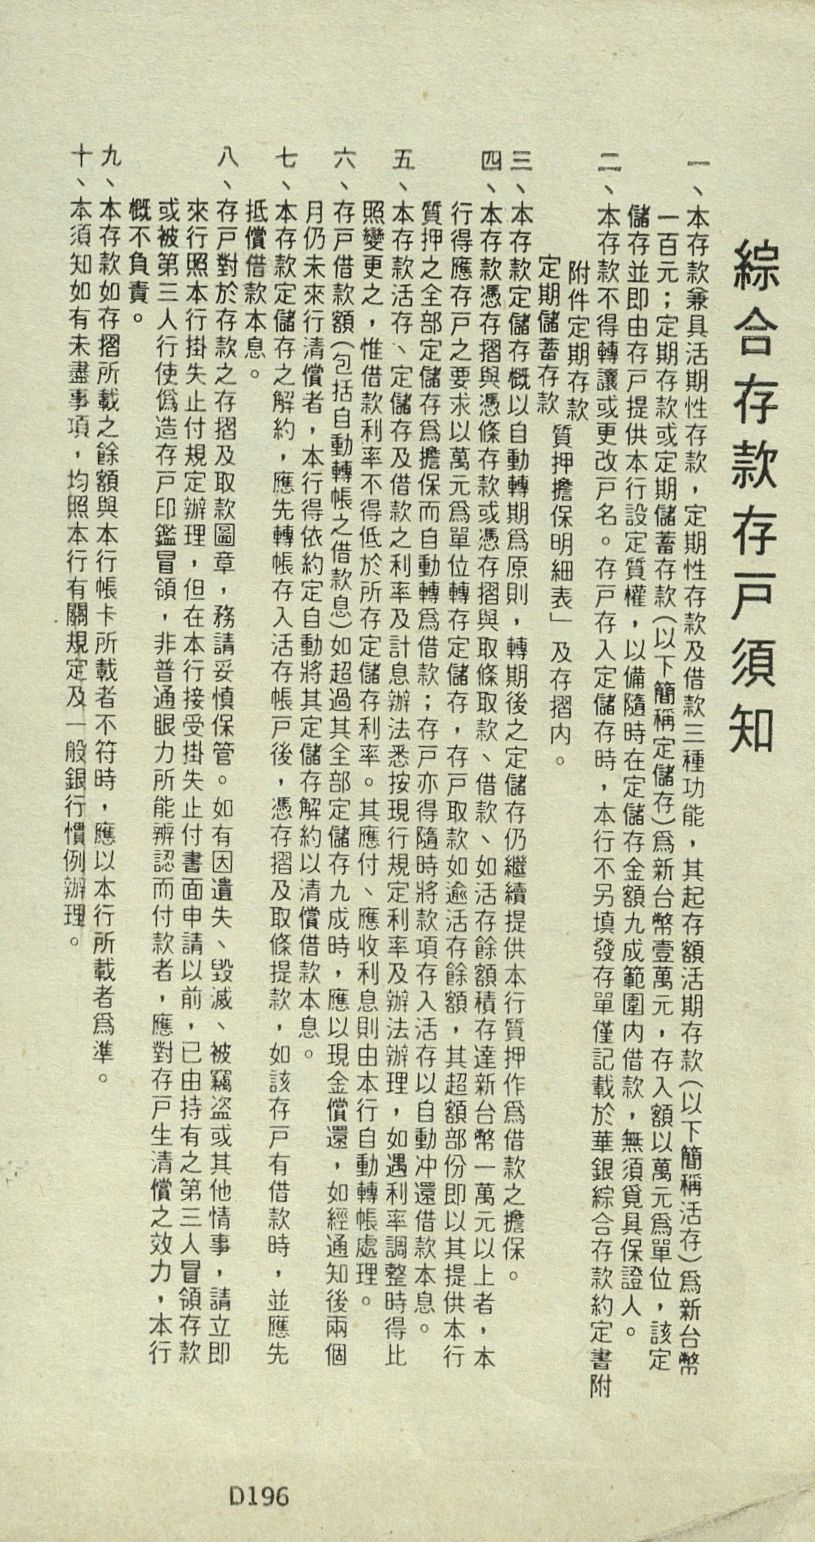 綜合存款存戶須知
一、本存款兼具活期性存款，定期性存款及借款三種功能，其起存額活期存款（以下簡稱活存）為新台幣
一百元；定期存款或定期儲蓄存款（以下簡稱定儲存）為新台幣壹萬元，存入額以萬元為單位，該定
儲存並即由存戶提供本行設定質權，以備隨時在定儲存金額九成範圍內借款，無須覓具保證人。
二、本存款不得轉讓或更改戶名。存戶存入定儲存時，本行不另填發存單僅記載於華銀綜合存款約定書附
附件定期存款
定期儲蓄存款
質押擔保明細表」及存摺內。
三、本存款定儲存概以自動轉期為原則，轉期後之定儲存仍繼續提供本行質押作為借款之擔保。
四、本存款憑存摺與憑條存款或憑存摺與取條取款、借款、如活存餘額積存達新台幣一萬元以上者，本
行得應存戶之要求以萬元為單位轉存定儲存，存戶取款如逾活存餘額，其超額部份即以其提供本行
質押之全部定儲存為擔保而自動轉為借款；存戶亦得隨時將款項存入活存以自動冲還借款本息。
五、本存款活存、定儲存及借款之利率及計息辦法悉按現行規定利率及辦法辦理，如遇利率調整時得比
照變更之，惟借款利率不得低於所存定儲存利率。其應付、應收利息則由本行自動轉帳處理。
六、存戶借款額（包括自動轉帳之借款息）如超過其全部定儲存九成時，應以現金償還，如經通知後兩個
月仍未來行清償者，本行得依約定自動將其定儲存解約以清償借款本息。
七、本存款定儲存之解約，應先轉帳存入活存帳戶後，憑存摺及取條提款，如該存戶有借款時，並應先
抵償借款本息。
八、存戶對於存款之存摺及取款圖章，務請妥慎保管。如有因遺失、毀滅、被竊盜或其他情事，請立即
來行照本行掛失止付規定辦理，但在本行接受掛失止付書面申請以前，已由持有之第三人冒領存款
或被第三人行使偽造存戶印鑑冒領，非普通眼力所能辨認而付款者，應對存戶生清償之效力，本行
概不負責。
九、本存款如存摺所載之餘額與本行帳卡所載者不符時，應以本行所載者為準。
十、本須知如有未盡事項，均照本行有關規定及一般銀行慣例辦理。
D196